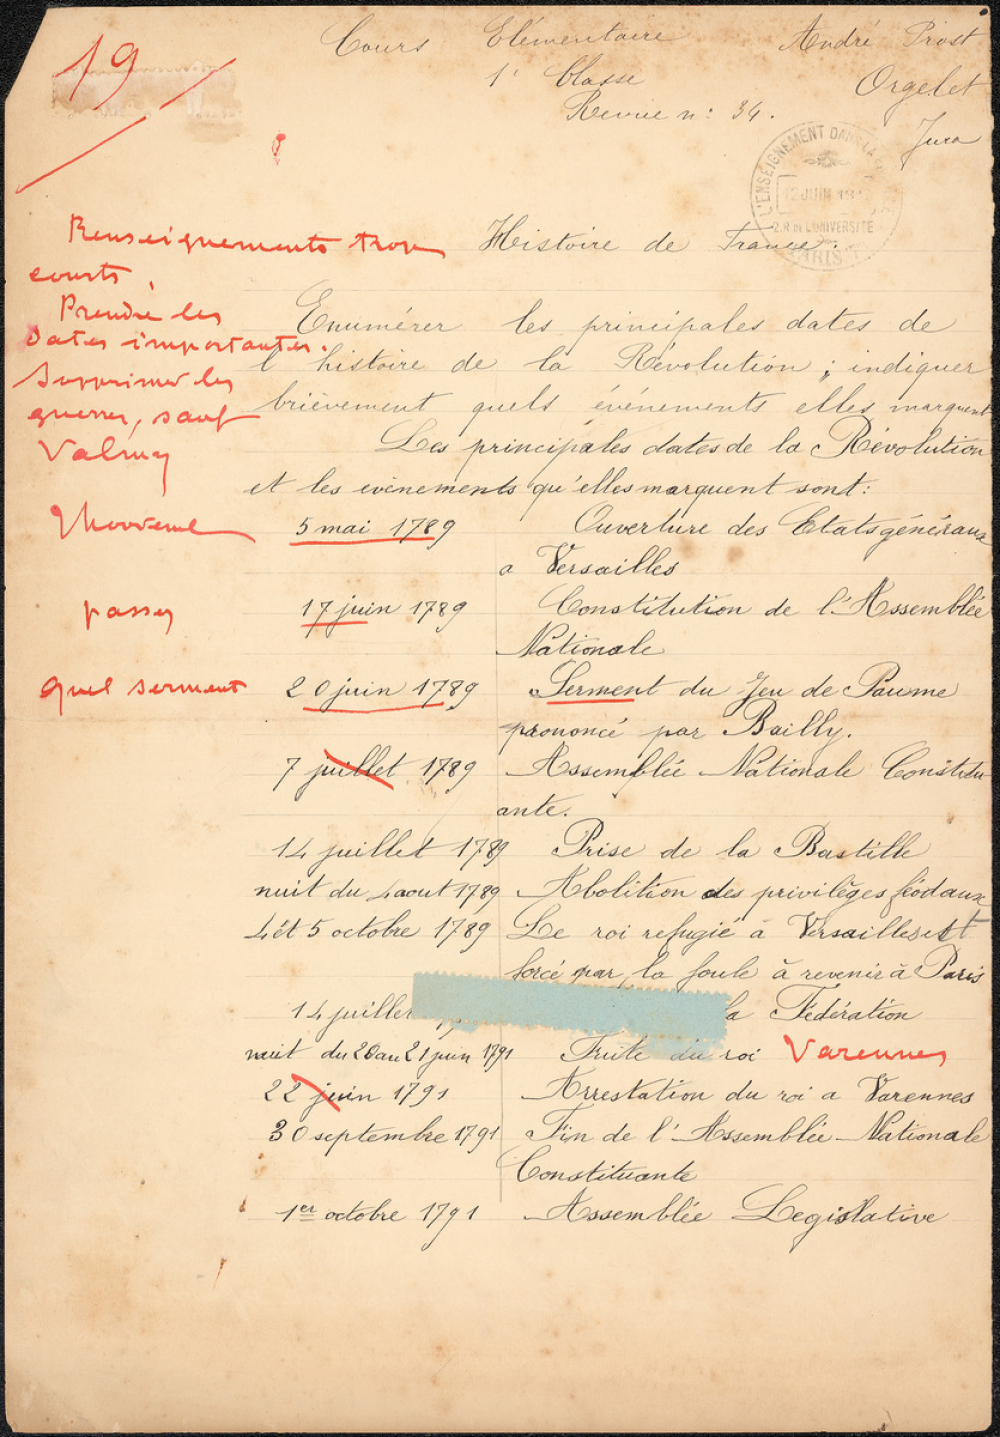 19
Cours Elémentaire André Prost
1e Classe Orgelet
Revue n: 34. Jura
L'ENSEIGNEMENT DANS LA
12 JUIN
2.R DE L'UNIVERSITÉ
PARIS
Renseignements trop
courts.
Prendre les
dates importantes.
Supprimer les
guerres, sauf
Valmy
Histoire de France.
Enumérer les principales dates de
l'histoire de la Révolution ; indiquer
brièvement quels événements elles marquent
Les principales dates de la Révolution
et les evènements qu'elles marquent sont:
5 mai 1789 Ouverture des Etats généraux
a Versailles
passer 17 juin 1789 Constitution de l'Assemblée
Nationale
quel serment 20 juin 1789 Serment du Jeu de Paume
prononcé par Bailly.
7 juillet 1789 Assemblée Nationale Constitu
ante.
14 juillet 1789 Prise de la Bastille
nuit du 4 aout 1789 Abolition des privilèges féodaux
4 et 5 octobre 1789 Le roi refugié à Versailles est
forcé par la foule à revenir à Paris
14 juillet la Fédération
nuit du 20 au 21 juin 1791 Fuite du roi Varennes
22 juin 1791 Arrestation du roi a Varennes
30 septembre 1791 Fin de l'Assemblée Nationale
Constituante
1er octobre 1791 Assemblée Legislative